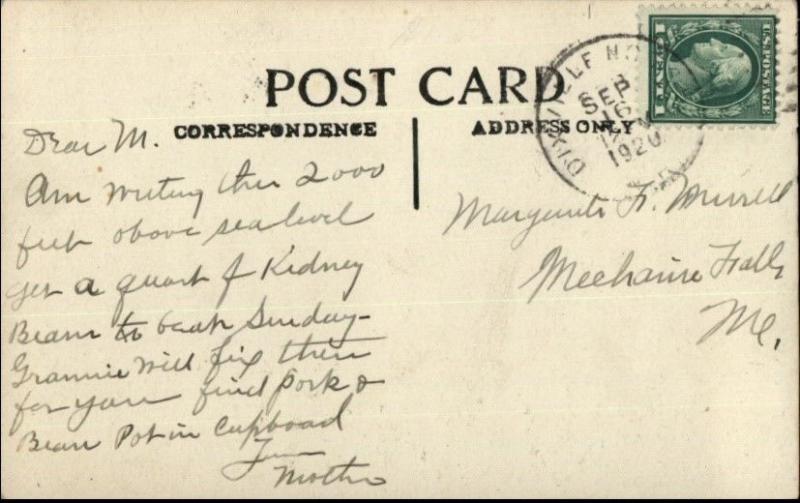 POST CARD
CORRESPONDENCE
ADDRESS ONLY
DIXVILLE NO
SEP
16
1920
1 CENT 1
U.S. POSTAGE
Dear M.
Am writing this 2000
feet above sea level
get a quart of Kidney
Beans to bake Sunday-
Grannie will fix them
for you find pork &
Bean Pot in Cupboard
Mother
Marguerite F. Murrell
Mechanic Falls
Me.